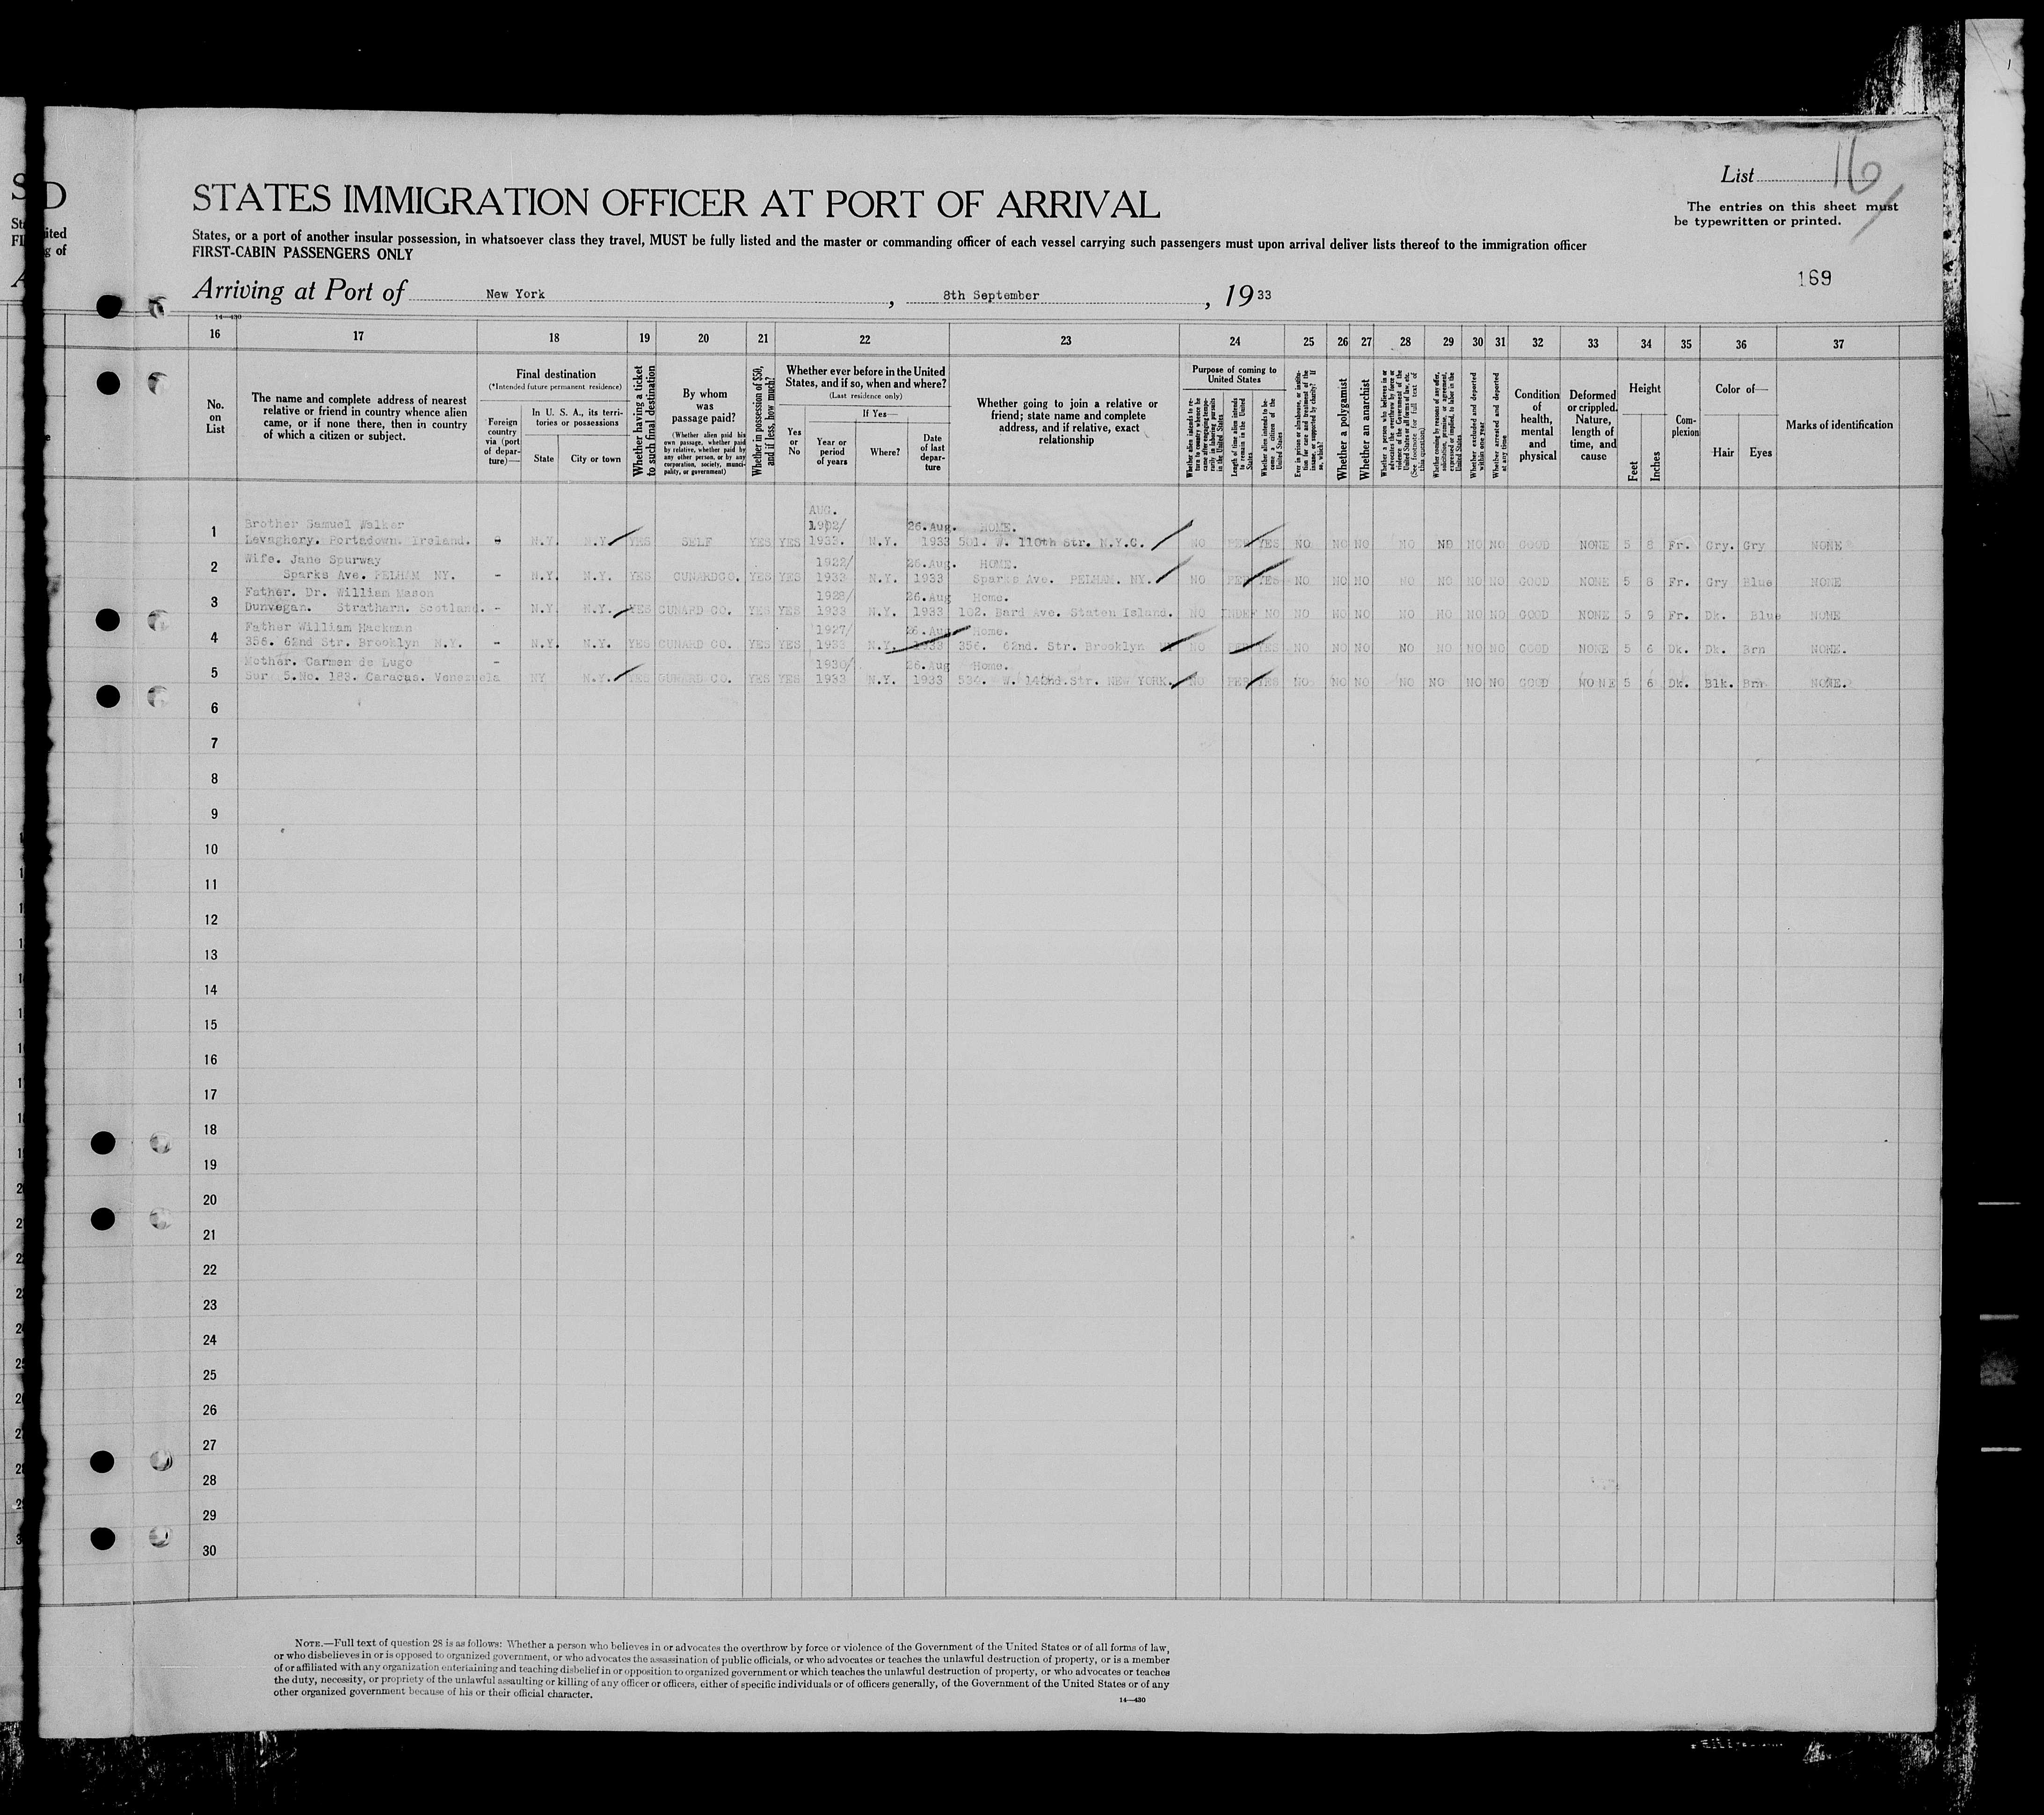 S D
STATES IMMIGRATION OFFICER AT PORT OF ARRIVAL
List 16
The entries on this sheet must
be typewritten or printed.
States, or a port of another insular possession, in whatsoever class they travel, MUST be fully listed and the master or commanding officer of each vessel carrying such passengers must upon arrival deliver lists thereof to the immigration officer
FIRST-CABIN PASSENGERS ONLY
169
Arriving at Port of New York, 8th September, 1933
14—430
16 17 18 19 20 21 22 23 24 25 26 27 28 29 30 31 32 33 34 35 36 37
No. on List
The name and complete address of nearest relative or friend in country whence alien came, or if none there, then in country of which a citizen or subject.
Final destination
(*Intended future permanent residence)
Foreign country via (port of departure)—
In U. S. A., its territories or possessions
State
City or town
Whether having a ticket to such final destination
By whom was passage paid?
(Whether alien paid his own passage, whether paid by relative, whether paid by any other person, or by any corporation, society, municipality, or government)
Whether in possession of $50, and if less, how much?
Whether ever before in the United States, and if so, when and where?
(Last residence only)
Yes or No
If Yes—
Year or period of years
Where?
Date of last departure
Whether going to join a relative or friend; state name and complete address, and if relative, exact relationship
Purpose of coming to United States
Whether alien intends to return to country whence he came after engaging temporarily in laboring pursuits in the United States
Length of time alien intends to remain in the United States
Whether alien intends to become a citizen of the United States
Ever in prison or almshouse, or institution for care and treatment of the insane, or supported by charity? If so, which?
Whether a polygamist
Whether an anarchist
Whether a person who believes in or advocates the overthrow by force or violence of the Government of the United States or all forms of law, etc. (See footnote for full text of this question)
Whether coming by reasons of any offer, solicitation, promise, or agreement, expressed or implied, to labor in the United States
Whether excluded and deported within one year
Whether arrested and deported at any time
Condition of health, mental and physical
Deformed or crippled. Nature, length of time, and cause
Height
Feet
Inches
Complexion
Color of—
Hair
Eyes
Marks of identification
AUG.
Brother Samuel Walker 1902/ 26.Aug. HOME.
1 Levaghery. Portadown. Ireland. N.Y. N.Y. YES SELF YES YES 1933. N.Y. 1933 501. W. 110th Str. N.Y.C. NO PER YES NO NO NO NO NO NO NO GOOD NONE 5 8 Fr. Gry. Gry NONE
Wife. Jane Spurway 1922/ 26.Aug. HOME.
2 Sparks Ave. PELHAM NY. - N.Y. N.Y. YES CUNARDCO. YES YES 1933 N.Y. 1933 Sparks Ave. PELHAM. NY. NO PER YES NO NO NO NO NO NO NO GOOD NONE 5 8 Fr. Gry Blue NONE
Father. Dr. William Mason 1928/ 26.Aug Home.
3 Dunvegan. Stratharn. Scotland. - N.Y. N.Y. YES CUNARD CO. YES YES 1933 N.Y. 1933 102. Bard Ave. Staten Island. NO INDEF NO NO NO NO NO NO NO NO GOOD NONE 5 9 Fr. Dk. Blue NONE
Father William Hackman 1927/ 26.Aug Home.
4 356. 62nd Str. Brooklyn N.Y. - N.Y. N.Y. YES CUNARD CO. YES YES 1933 N.Y. 1933 356. 62nd. Str. Brooklyn NO PER YES NO NO NO NO NO NO NO GOOD NONE 5 6 Dk. Dk. Brn NONE.
Mother. Carmen de Lugo - 1930/ 26.Aug Home.
5 Sur 5.No. 183. Caracas. Venezuela NY N.Y. YES CUNARD CO. YES YES 1933 N.Y. 1933 530. W. 142nd.Str. NEW YORK. NO PER YES NO NO NO NO NO NO NO GOOD NONE 5 6 Dk. Blk. Brn NONE.
6
7
8
9
10
11
12
13
14
15
16
17
18
19
20
21
22
23
24
25
26
27
28
29
30
NOTE.—Full text of question 28 is as follows: Whether a person who believes in or advocates the overthrow by force or violence of the Government of the United States or of all forms of law,
or who disbelieves in or is opposed to organized government, or who advocates the assassination of public officials, or who advocates or teaches the unlawful destruction of property, or is a member
of or affiliated with any organization entertaining and teaching disbelief in or opposition to organized government or which teaches the unlawful destruction of property, or who advocates or teaches
the duty, necessity, or propriety of the unlawful assaulting or killing of any officer or officers, either of specific individuals or of officers generally, of the Government of the United States or of any
other organized government because of his or their official character.
14—430